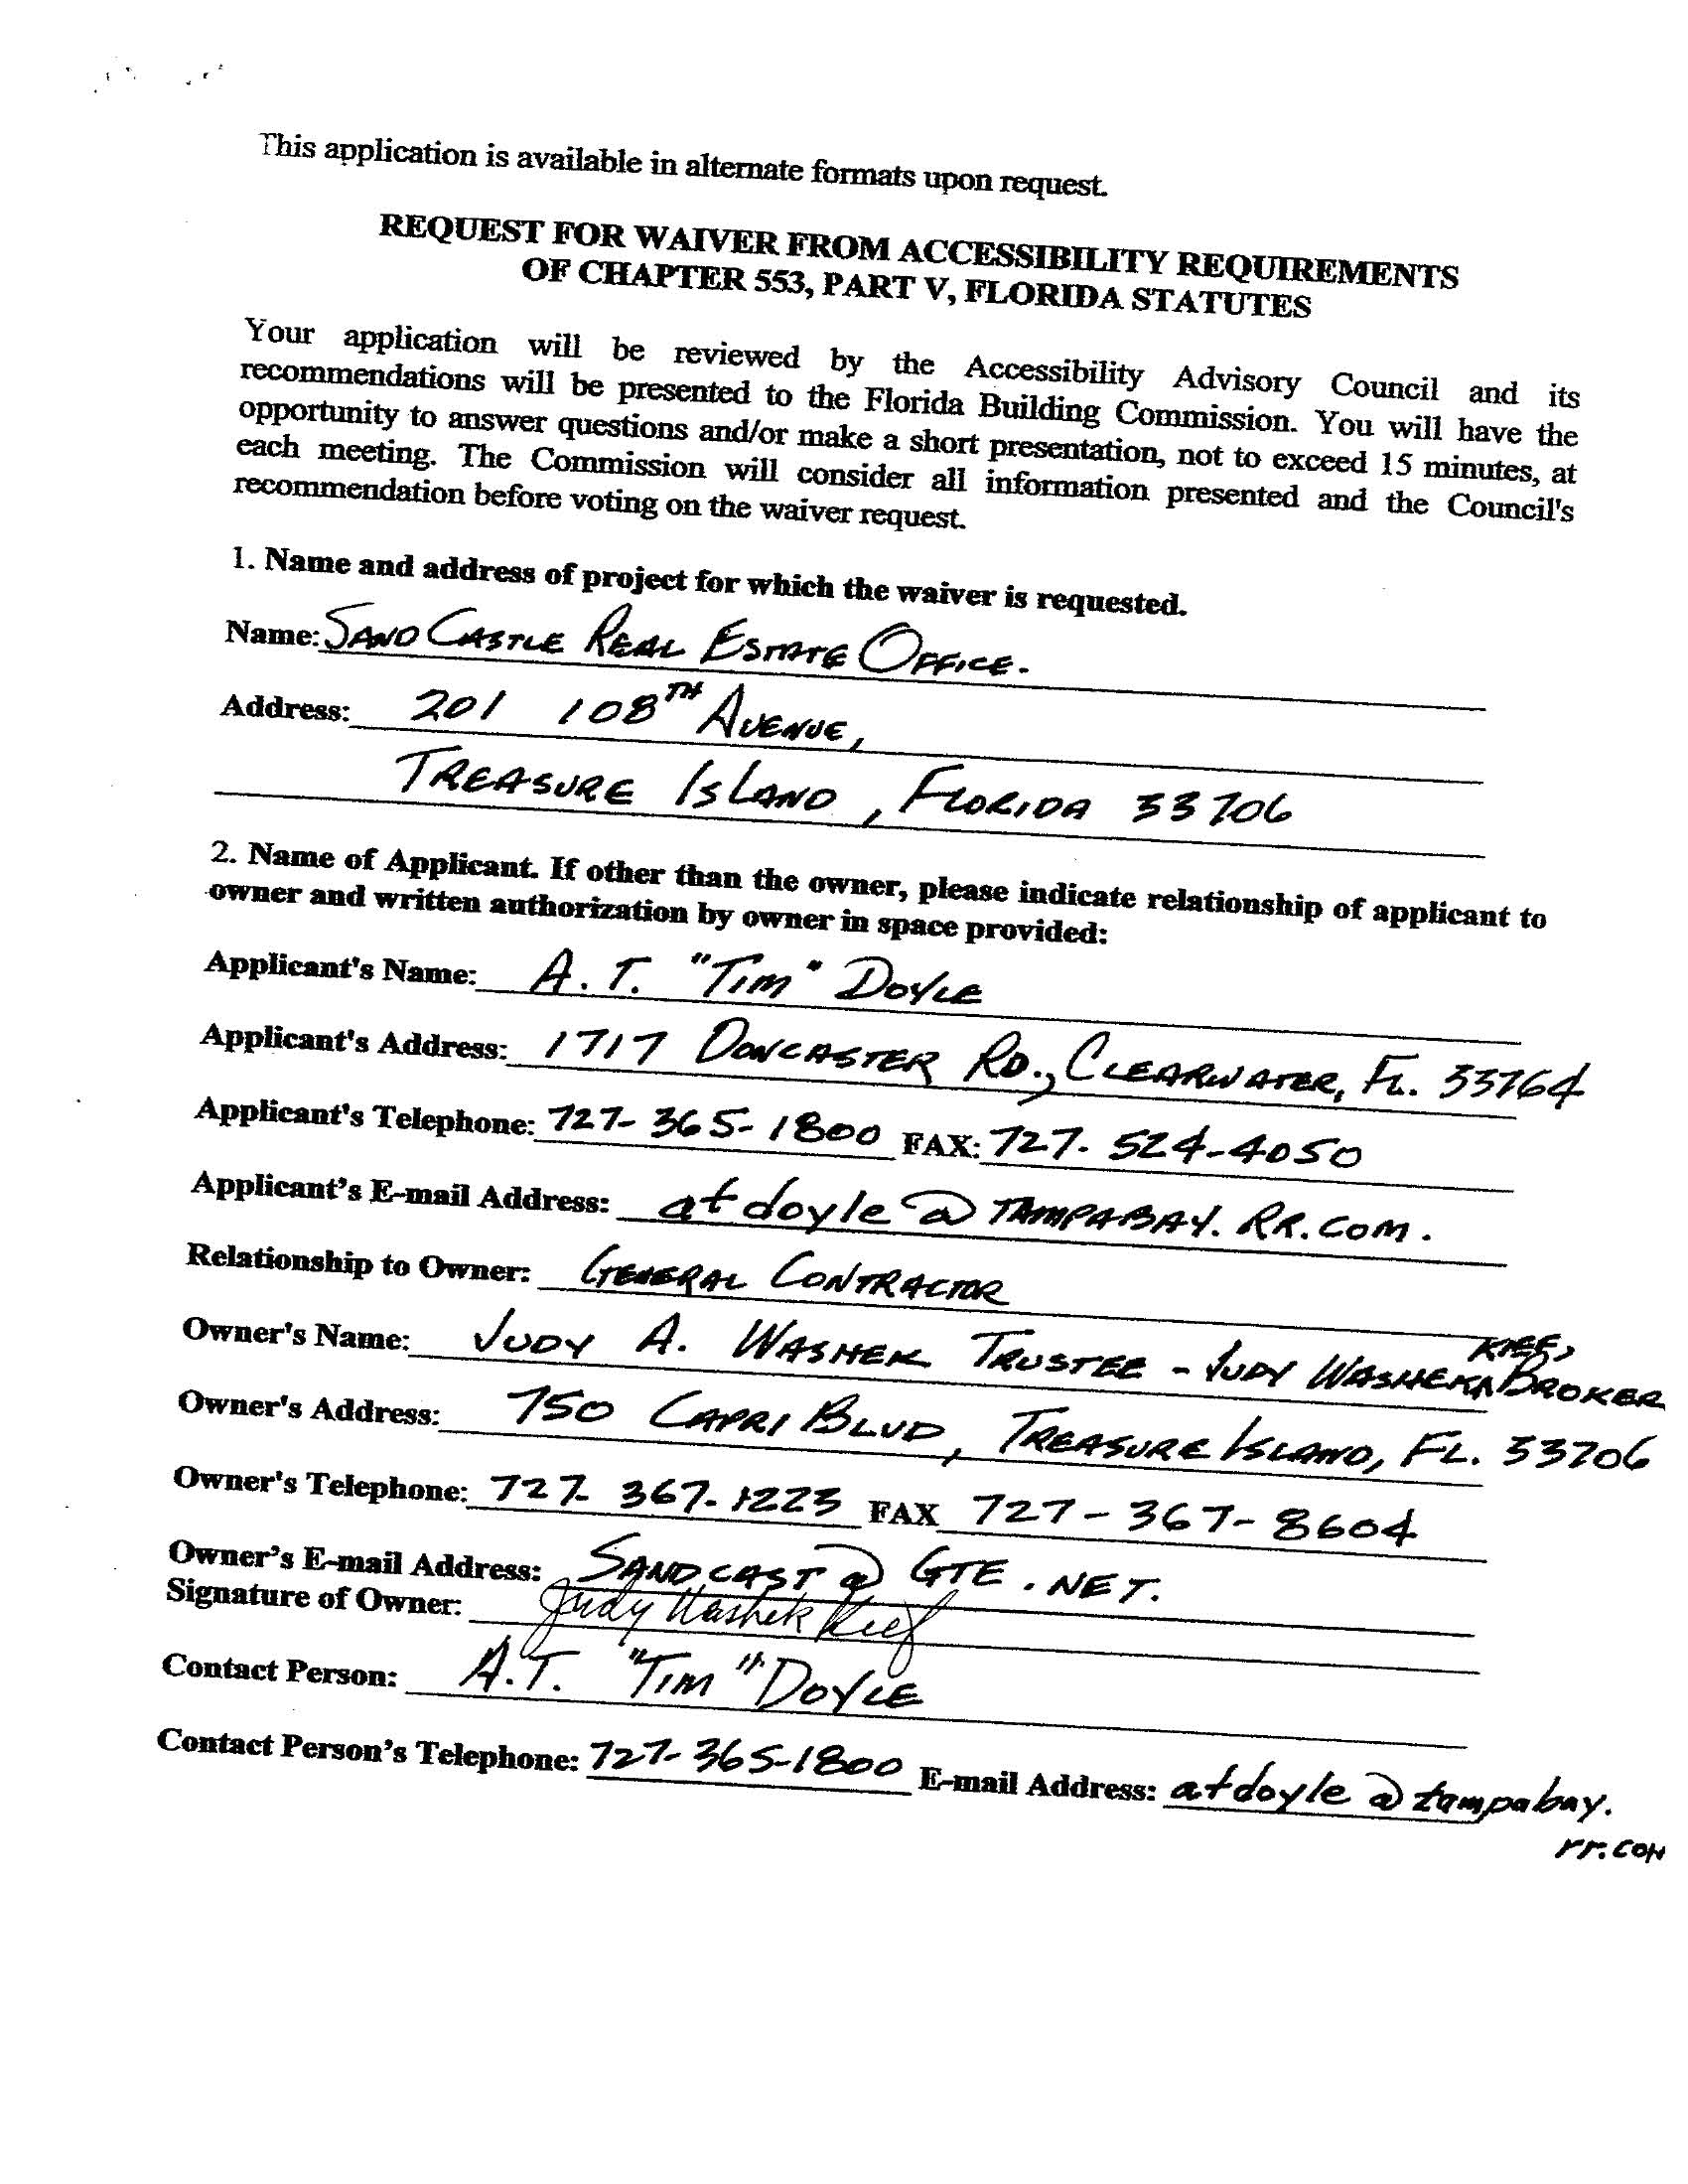 This application is available in alternate formats upon request.
REQUEST FOR WAIVER FROM ACCESSIBILITY REQUIREMENTS
OF CHAPTER 553, PART V, FLORIDA STATUTES
Your application will be reviewed by the Accessibility Advisory Council and its
recommendations will be presented to the Florida Building Commission. You will have the
opportunity to answer questions and/or make a short presentation, not to exceed 15 minutes, at
each meeting. The Commission will consider all information presented and the Council's
recommendation before voting on the waiver request.
1. Name and address of project for which the waiver is requested.
Name: SAND CASTLE REAL ESTATE OFFICE.
Address: 201 108TH AVENUE,
TREASURE ISLAND, FLORIDA 33706
2. Name of Applicant. If other than the owner, please indicate relationship of applicant to
owner and written authorization by owner in space provided:
Applicant's Name: A. T. "TIM" DOYLE
Applicant's Address: 1717 DONCASTER RD., CLEARWATER, FL. 33764
Applicant's Telephone: 727-365-1800 FAX: 727-524-4050
Applicant's E-mail Address: atdoyle@TAMPABAY.RR.COM.
Relationship to Owner: GENERAL CONTRACTOR
Owner's Name: JUDY A. WASHEK TRUSTEE - JUDY WASHEK KIEF, BROKER
Owner's Address: 750 CAPRI BLVD, TREASURE ISLAND, FL. 33706
Owner's Telephone: 727-367-1223 FAX 727-367-8604
Owner's E-mail Address: SANDCAST@GTE.NET.
Signature of Owner: Judy Washek Kief
Contact Person: A.T. "TIM" DOYLE
Contact Person's Telephone: 727-365-1800 E-mail Address: atdoyle@tampabay.
rr.com